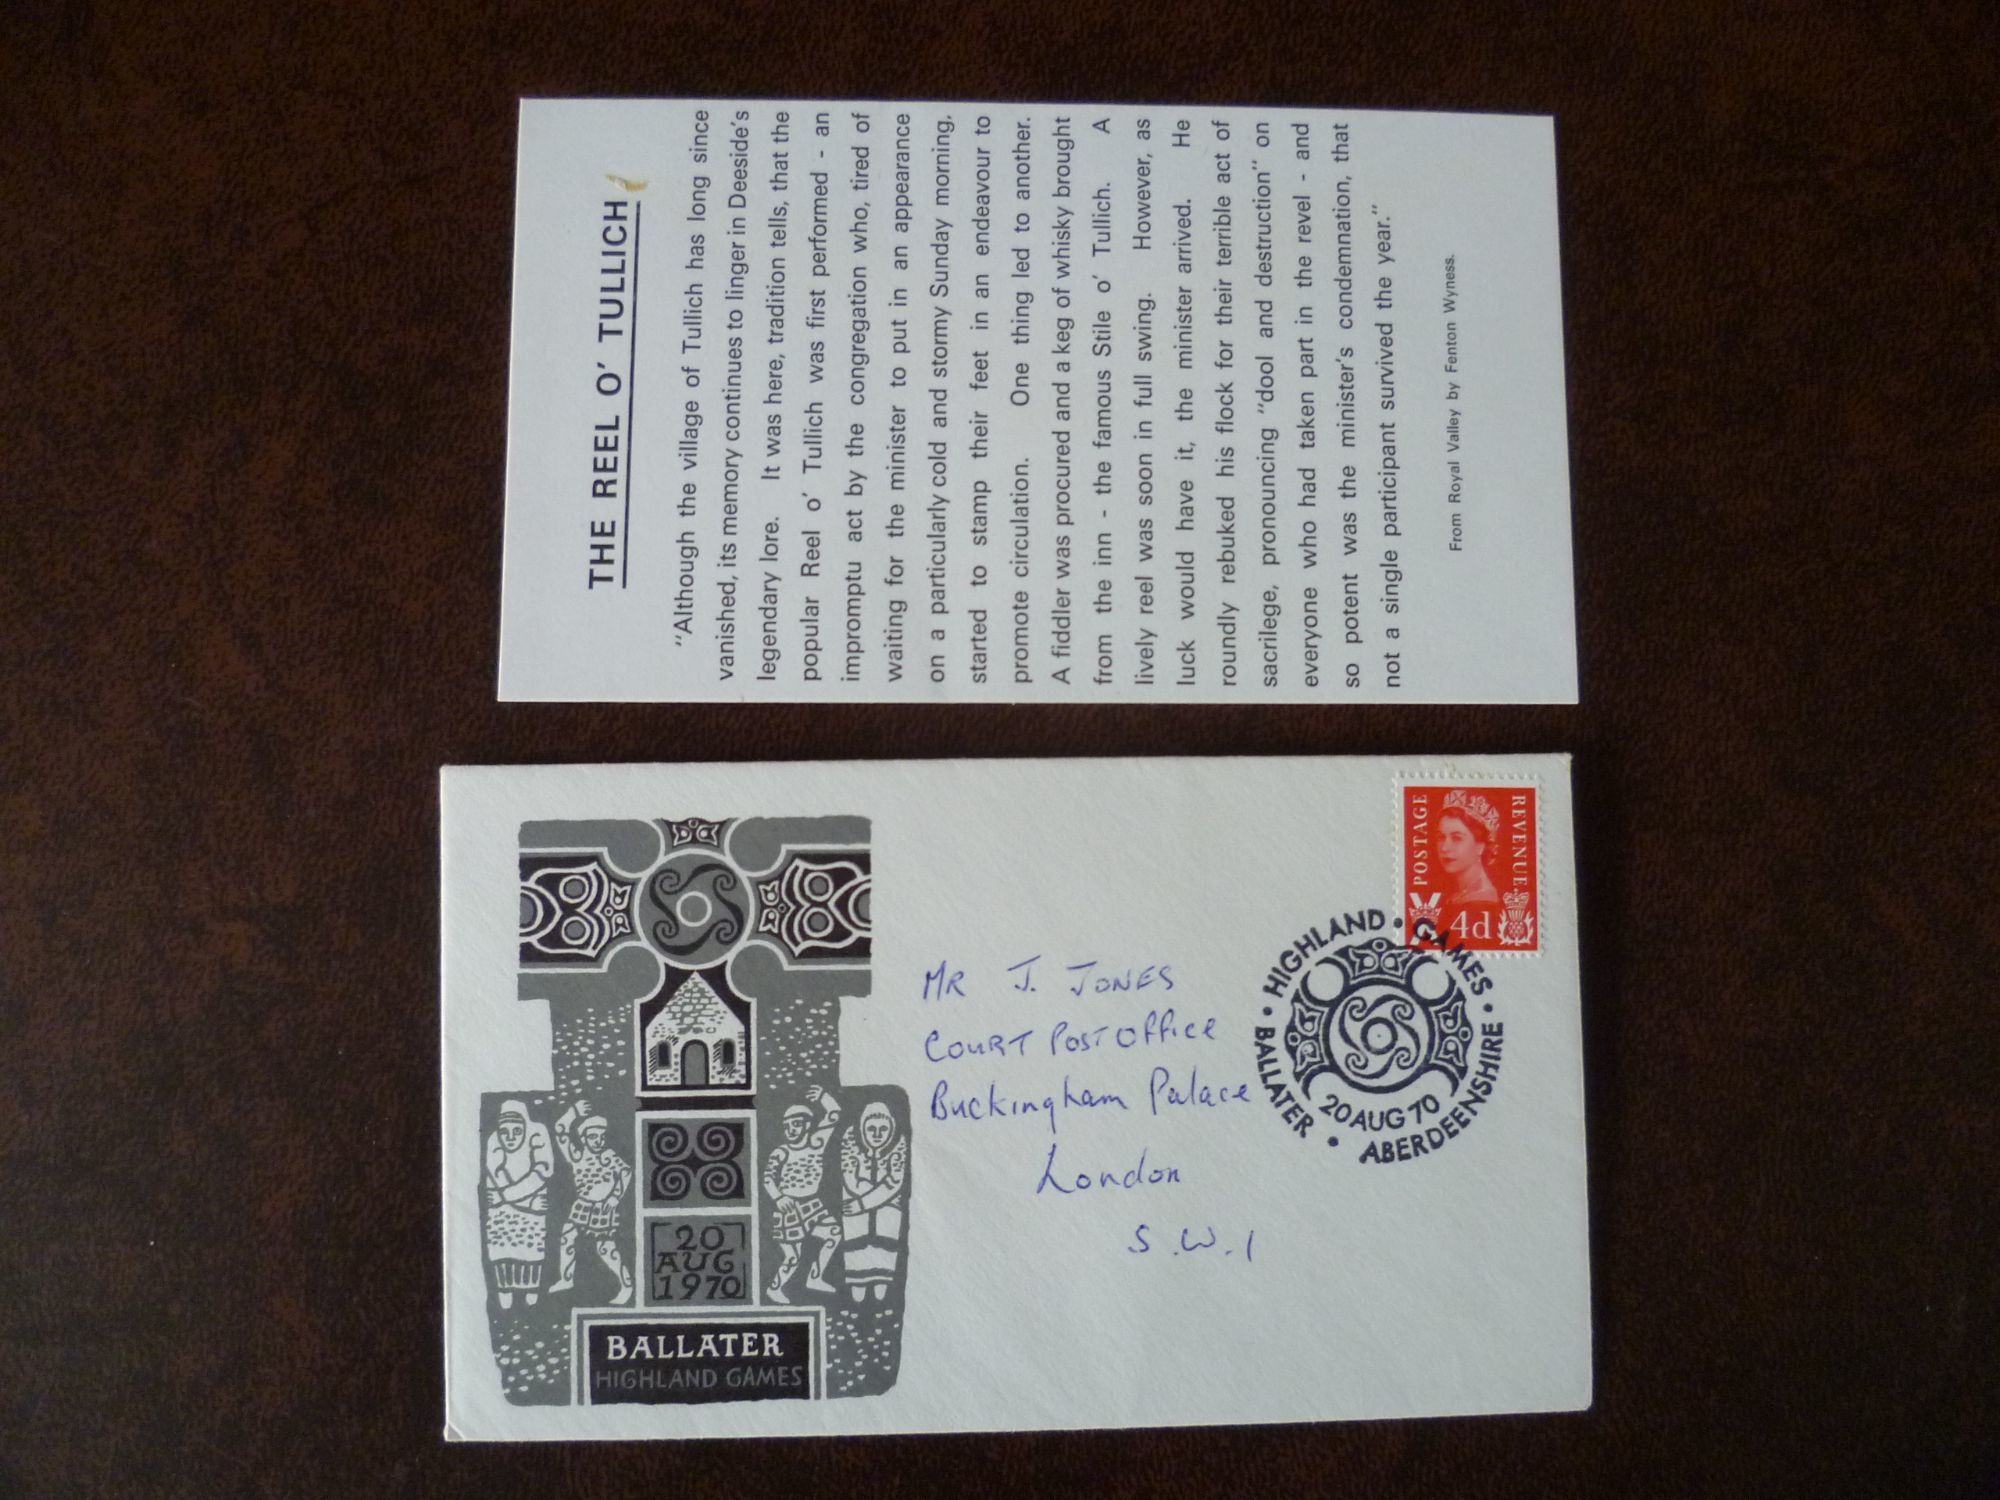 THE REEL O' TULLICH
"Although the village of Tullich has long since
vanished, its memory continues to linger in Deeside's
legendary lore. It was here, tradition tells, that the
popular Reel o' Tullich was first performed - an
impromptu act by the congregation who, tired of
waiting for the minister to put in an appearance
on a particularly cold and stormy Sunday morning,
started to stamp their feet in an endeavour to
promote circulation. One thing led to another.
A fiddler was procured and a keg of whisky brought
from the inn - the famous Stile o' Tullich. A
lively reel was soon in full swing. However, as
luck would have it, the minister arrived. He
roundly rebuked his flock for their terrible act of
sacrilege, pronouncing "dool and destruction" on
everyone who had taken part in the revel - and
so potent was the minister's condemnation, that
not a single participant survived the year."
From Royal Valley by Fenton Wyness.
20
AUG
1970
BALLATER
HIGHLAND GAMES
MR J. JONES
COURT POST OFFICE
Buckingham Palace
London
S.W.1
POSTAGE
REVENUE
4d
BALLATER • HIGHLAND • GAMES • ABERDEENSHIRE •
20 AUG 70